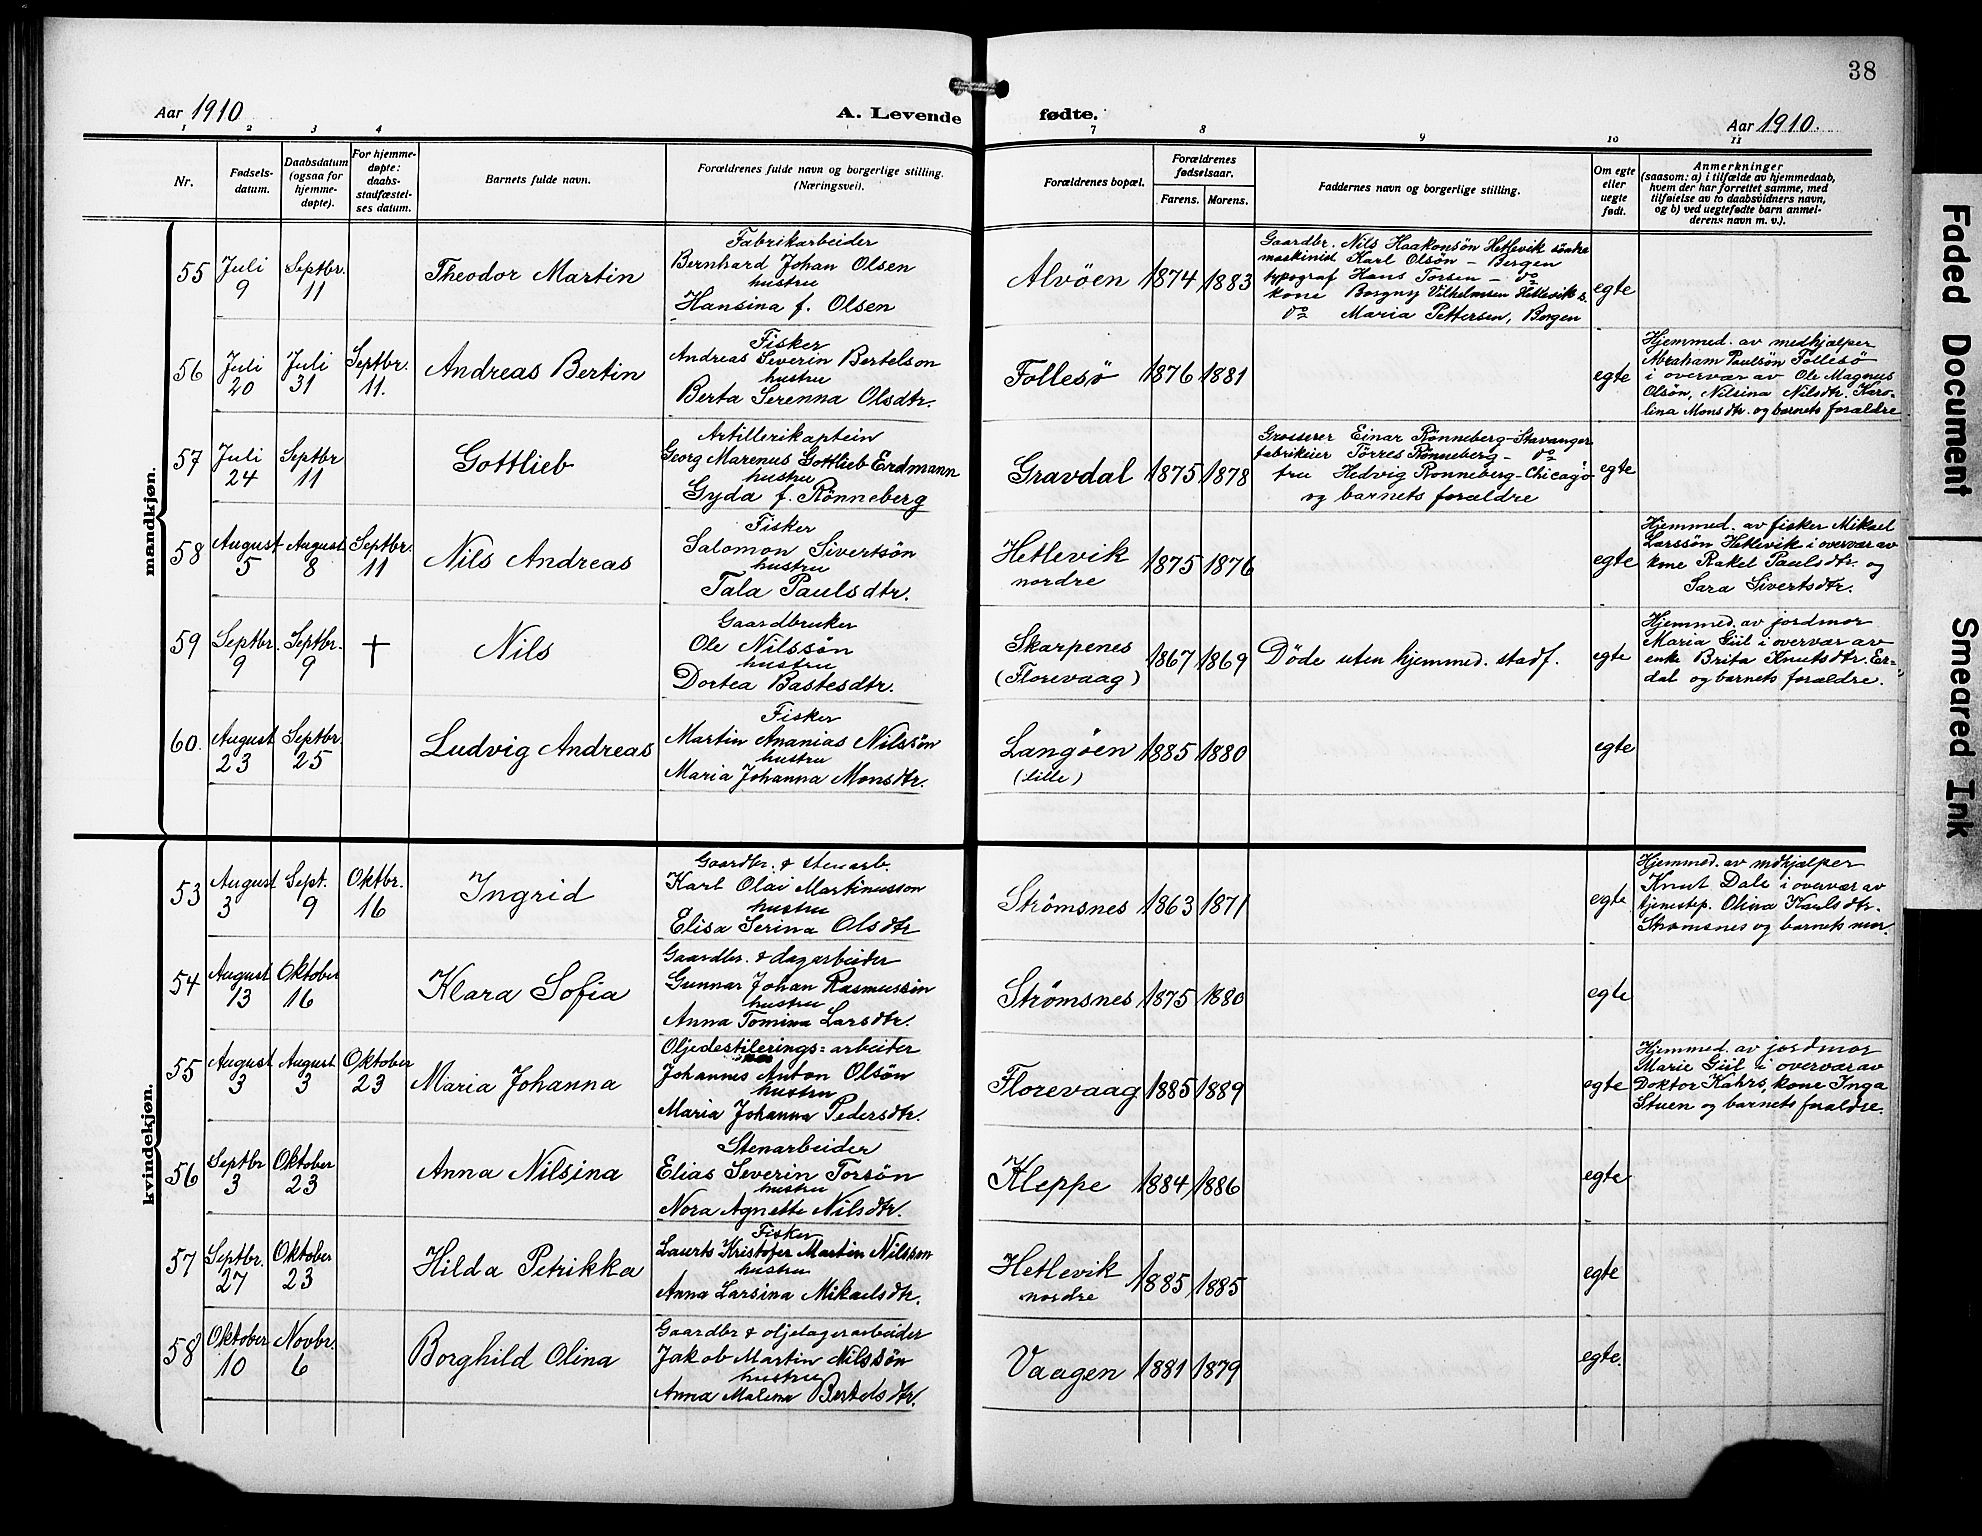 38
Aar 1910
A. Levende fødte.
Aar 1910.
1 2 3 4 7 8 9 10 11
Nr.
Fødsels-
datum.
Daabsdatum
(ogsaa for
hjemme-
døpte).
For hjemme-
døpte:
daabs-
stadfæstel-
ses datum.
Barnets fulde navn.
Forældrenes fulde navn og borgerlige stilling.
(Næringsvei).
Forældrenes bopæl.
Forældrenes
fødselsaar.
Farens. Morens.
Faddernes navn og borgerlige stilling.
Om egte
eller
uegte
født.
Anmerkninger
(saasom: a) i tilfælde av hjemmedaab,
hvem der har forrettet samme, med
tilføielse av to daabsvidners navn,
og b) ved uegtefødte barn anmel-
derens navn m. v.).
mandkjøn.
55
Juli
9
Septbr.
11
Theodor Martin
Fabrikarbeider
Bernhard Johan Olsen
hustru
Hansina f. Olsen
Alvøen
1874
1883
Gaardbr. Nils Haakonsøn Hetlevik søndre
maskinist Karl Olsøn – Bergen
typograf Hans Torsen – do
kone Borgny Vilhelmsen Hetlevik s.
do Maria Pettersen, Bergen
egte
56
Juli
20
Juli
31
Septbr.
11.
Andreas Bertin
Fisker
Andreas Severin Bertelson
hustru
Berta Serenna Olsdtr.
Follesø
1876
1881
egte
Hjemmed. av medhjælper
Abraham Paulsøn Follesø
i overvær av Ole Magnus
Olsøn, Nilsina Nilsdtr. Karo-
lina Monsdtr. og barnets forældre
57
Juli
24
Septbr
11
Gottlieb
Artillerikaptein
Georg Marenus Gottlieb Erdmann
hustru
Gyda f. Rønneberg
Gravdal
1875
1878
Grosserer Einar Rønneberg – Stavanger
fabrikeier Törres Rønneberg – do
fru Hedvig Ronneberg – Chicago
og barnets forældre
egte
58
August
5
August
8
Septbr.
11
Nils Andreas
Fisker
Salomon Sivertsøn
hustru
Tala Paulsdtr.
Hetlevik
nordre
1875
1876
egte
Hjemmed. av fisker Mikael
Larssøn Hetlevik i overvær av
kone Rakel Paulsdtr. og
Sara Sivertsdtr.
59
Septbr.
9
Septbr.
9
+
Nils
Gaardbruker
Ole Nilssøn
hustru
Dortea Bastesdtr.
Skarpenes
(Florevaag)
1867
1869
Døde uten hjemmed. stadf.
egte
Hjemmed. av jordmor
Maria Giil i overvær av
enke Brita Knutsdtr. Er-
dal og barnets forældre.
60.
August
23
Septbr.
25
Ludvig Andreas
Fisker
Martin Ananias Nilssøn
hustru
Maria Johanna Monsdtr.
Langøen
(lille)
1885
1880
egte
kvindekjøn.
53
August
3
Sept.
9
Oktbr.
16
Ingrid
Gaardbr. & stenarb.
Karl Olai Martinusson
hustru
Elisa Serina Olsdtr
Strømsnes
1863
1871
egte
Hjemmed. av mdhjælper
Knut Dale i overvær av
tjenestep. Olina Karlsdtr.
Strømsnes og barnets mor.
54
August
13
Oktober
16
Klara Sofia
Gaardbr. & dagarbeider
Gunnar Johan Rasmussøn
hustru
Anna Tomina Larsdtr.
Strømsnes
1875
1880
egte
55
August
3
August
3
Oktober
23
Maria Johanna
Oljedestilerings=arbeider
Johannes Anton Olsøn
hustru
Maria Johanna Pedersdtr.
Florevaag
1885
1889
egte
Hjemmed. av jordmor
Marie Giil i overvær av
Doktor Kahrs, kone Inga
Stuen og barnets forældre.
56
Septbr
3
Oktober
23
Anna Nilsina
Stenarbeider
Elias Severin Torsøn
hustru
Nora Agnette Nilsdtr.
Kleppe
1884
1886
egte
57
Septbr.
27
Oktober
23
Hilda Petrikka
Fisker
Laurts Kristofer Martin Nilsson
hustru
Anna Larsina Mikaelsdtr.
Hetlevik
nordre
1885
1885
egte
58
Oktober
10
Novbr.
6
Borghild Olina
Gaardbr & oljelagerarbeider
Jakob Martin Nilssøn
hustru
Anna Malena Bertelsdtr.
Vaagen
1881
1879
egte.
Faded Document
Smeared Ink